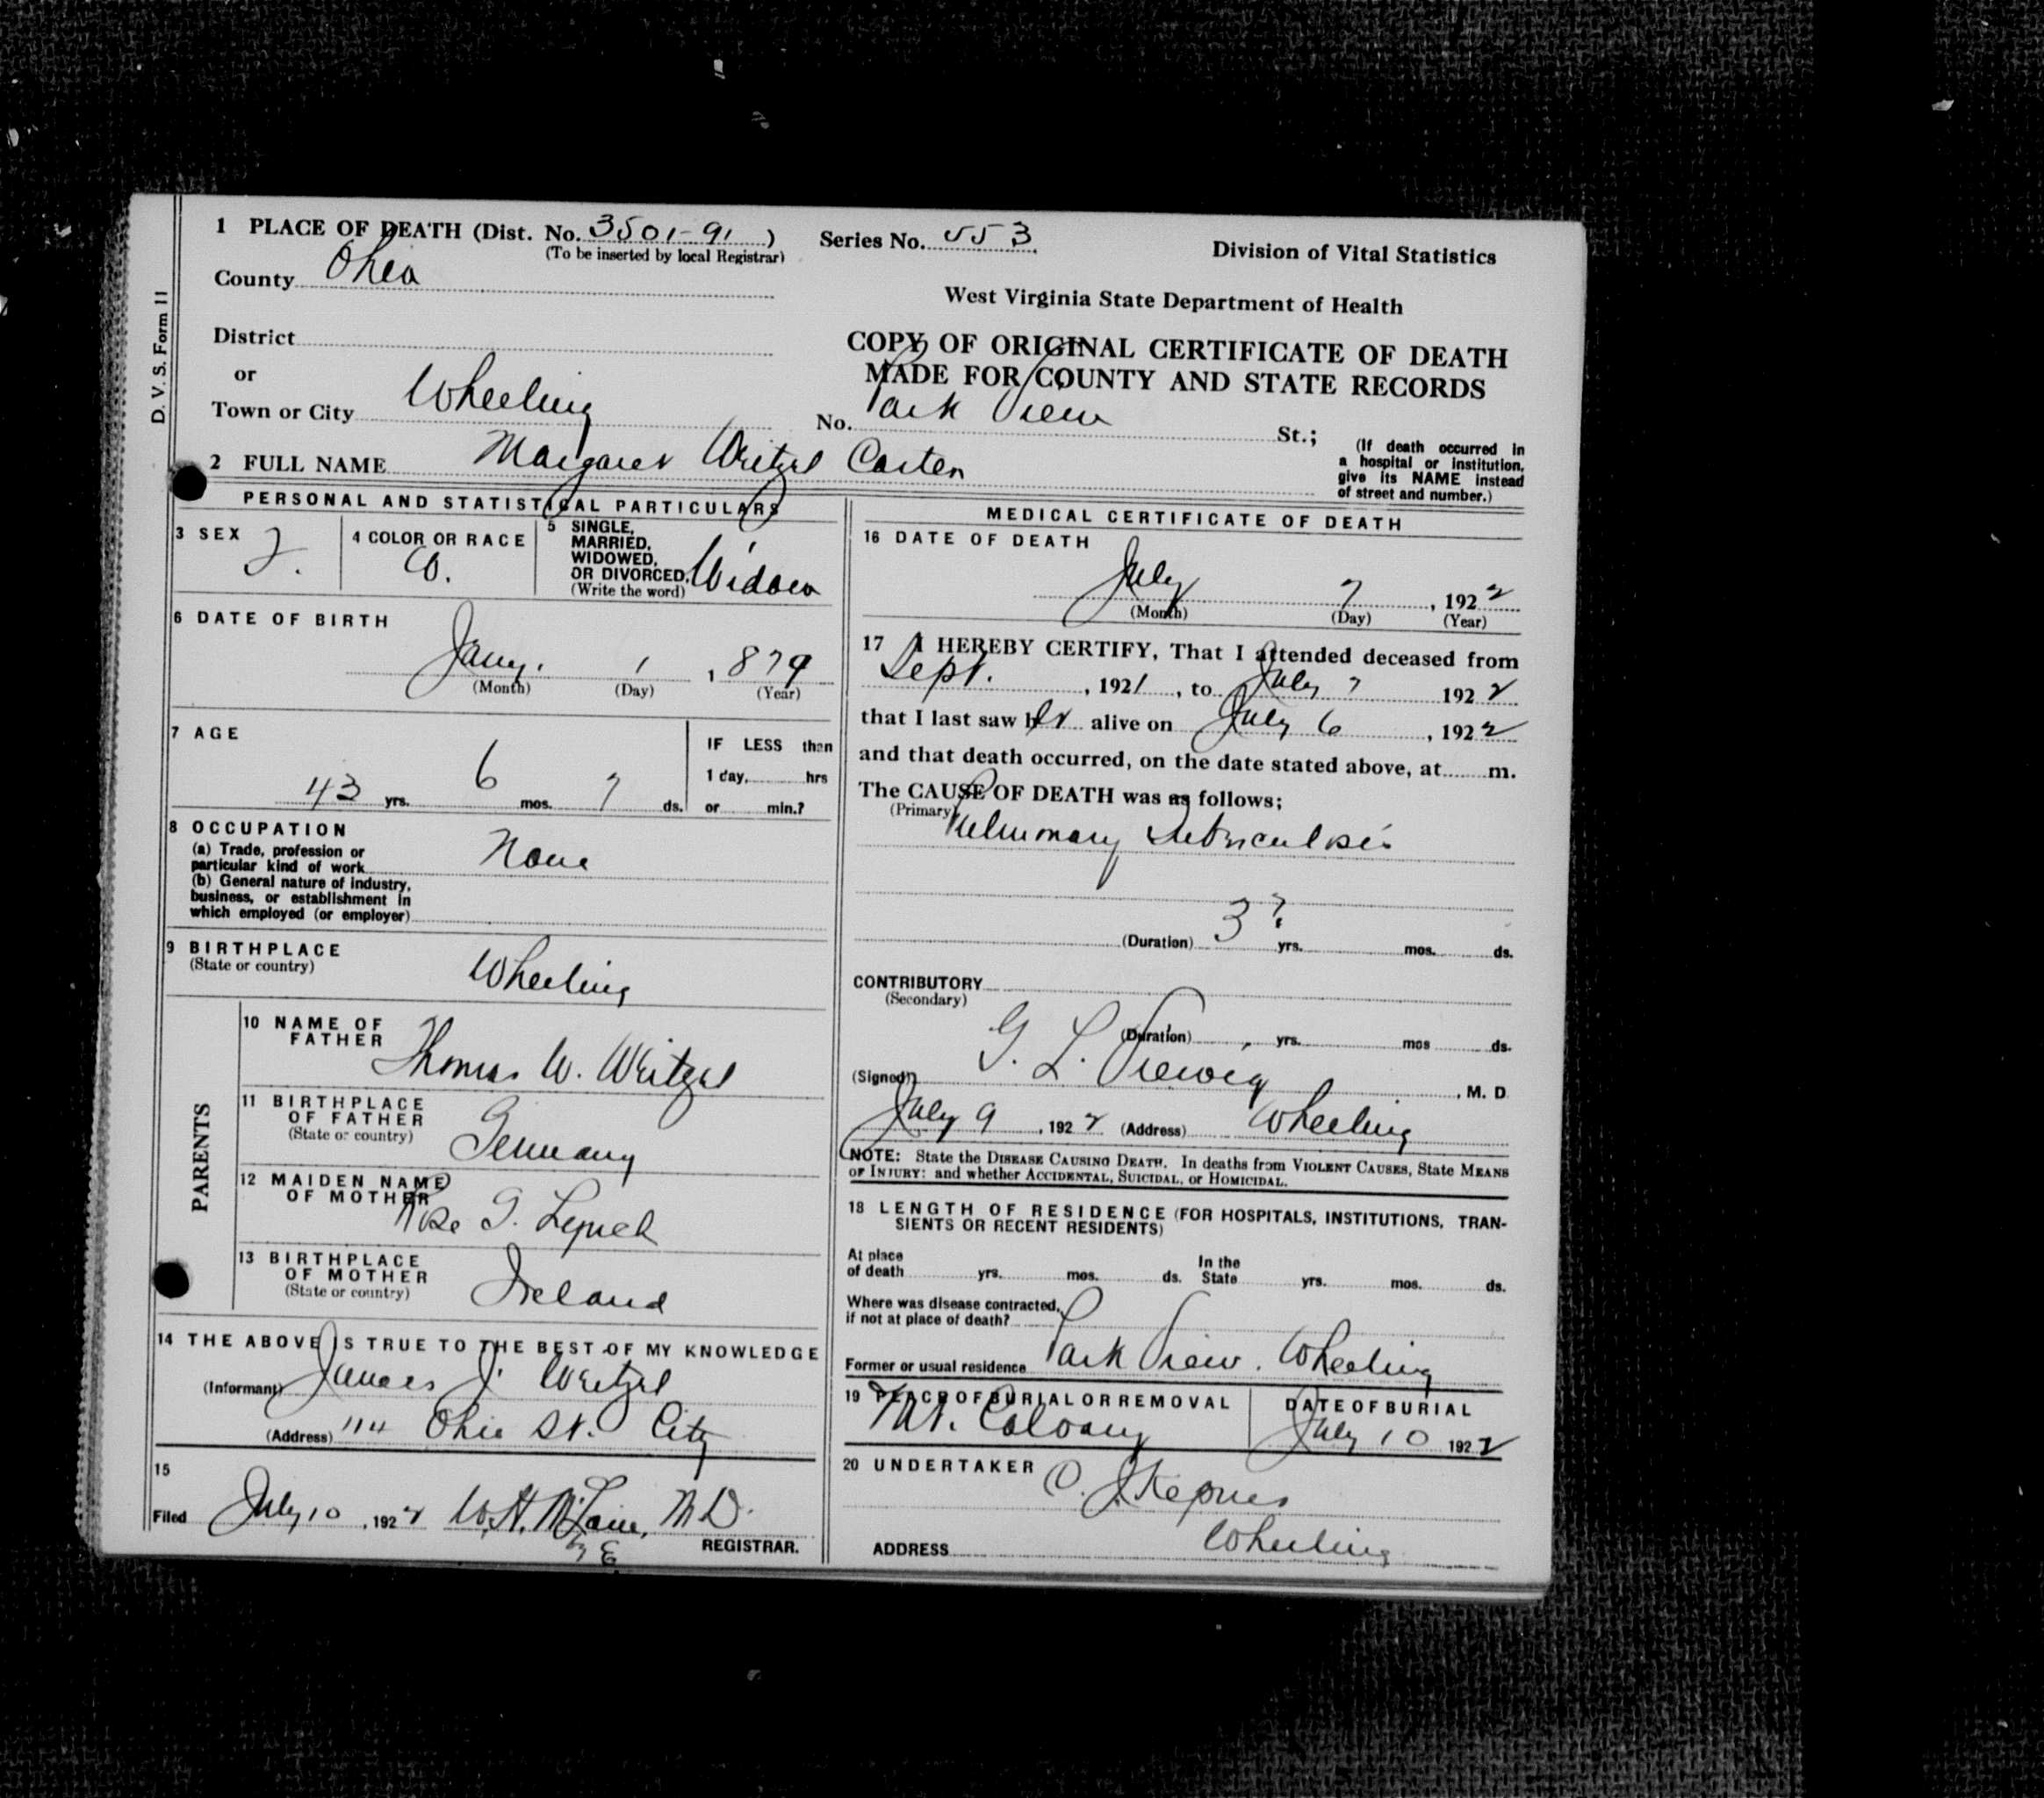 D. V. S. Form 11
1 PLACE OF DEATH (Dist. No. 3501-91 ) Series No. 553
(To be inserted by local Registrar)
Division of Vital Statistics
County Ohio
West Virginia State Department of Health
District
or
COPY OF ORIGINAL CERTIFICATE OF DEATH
MADE FOR COUNTY AND STATE RECORDS
Town or City Wheeling No. Park View St.;
(If death occurred in
a hospital or institution,
give its NAME instead
of street and number.)
2 FULL NAME Margaret Weitzel Carter
PERSONAL AND STATISTICAL PARTICULARS
3 SEX F.
4 COLOR OR RACE W.
5 SINGLE,
MARRIED,
WIDOWED,
OR DIVORCED. Widow
(Write the word)
6 DATE OF BIRTH
Jany. 1 , 1879
(Month) (Day) (Year)
7 AGE
43 yrs. 6 mos. 7 ds.
IF LESS than
1 day, hrs
or min.?
8 OCCUPATION
(a) Trade, profession or
particular kind of work None
(b) General nature of industry,
business, or establishment in
which employed (or employer)
9 BIRTHPLACE
(State or country) Wheeling
PARENTS
10 NAME OF
FATHER Thomas W. Weitzel
11 BIRTHPLACE
OF FATHER
(State or country) Germany
12 MAIDEN NAME
OF MOTHER Rose G. Lynch
13 BIRTHPLACE
OF MOTHER
(State or country) Ireland
14 THE ABOVE IS TRUE TO THE BEST OF MY KNOWLEDGE
(Informant) James J. Weitzel
(Address) 114 Ohio St. City
15
Filed July 10 , 1922 W. H. McLain, M D.
REGISTRAR.
MEDICAL CERTIFICATE OF DEATH
16 DATE OF DEATH
July 7 , 1922
(Month) (Day) (Year)
17 I HEREBY CERTIFY, That I attended deceased from
Sept. , 1921 , to July 7 1922
that I last saw her alive on July 6 , 1922
and that death occurred, on the date stated above, at m.
The CAUSE OF DEATH was as follows;
(Primary) Pulmonary Tuberculosis
(Duration) 3? yrs. mos. ds.
CONTRIBUTORY
(Secondary)
(Duration) yrs. mos ds.
(Signed) G. L. Vieweg , M. D
July 9 , 1922 (Address) Wheeling
NOTE: State the DISEASE CAUSING DEATH. In deaths from VIOLENT CAUSES, State MEANS
OF INJURY: and whether ACCIDENTAL, SUICIDAL, or HOMICIDAL.
18 LENGTH OF RESIDENCE (FOR HOSPITALS, INSTITUTIONS, TRAN-
SIENTS OR RECENT RESIDENTS)
At place
of death yrs. mos. ds. In the
State yrs. mos. ds.
Where was disease contracted,
if not at place of death?
Former or usual residence Park View. Wheeling
19 PLACE OF BURIAL OR REMOVAL
Mt. Calvary
DATE OF BURIAL
July 10 1922
20 UNDERTAKER
ADDRESS Wheeling